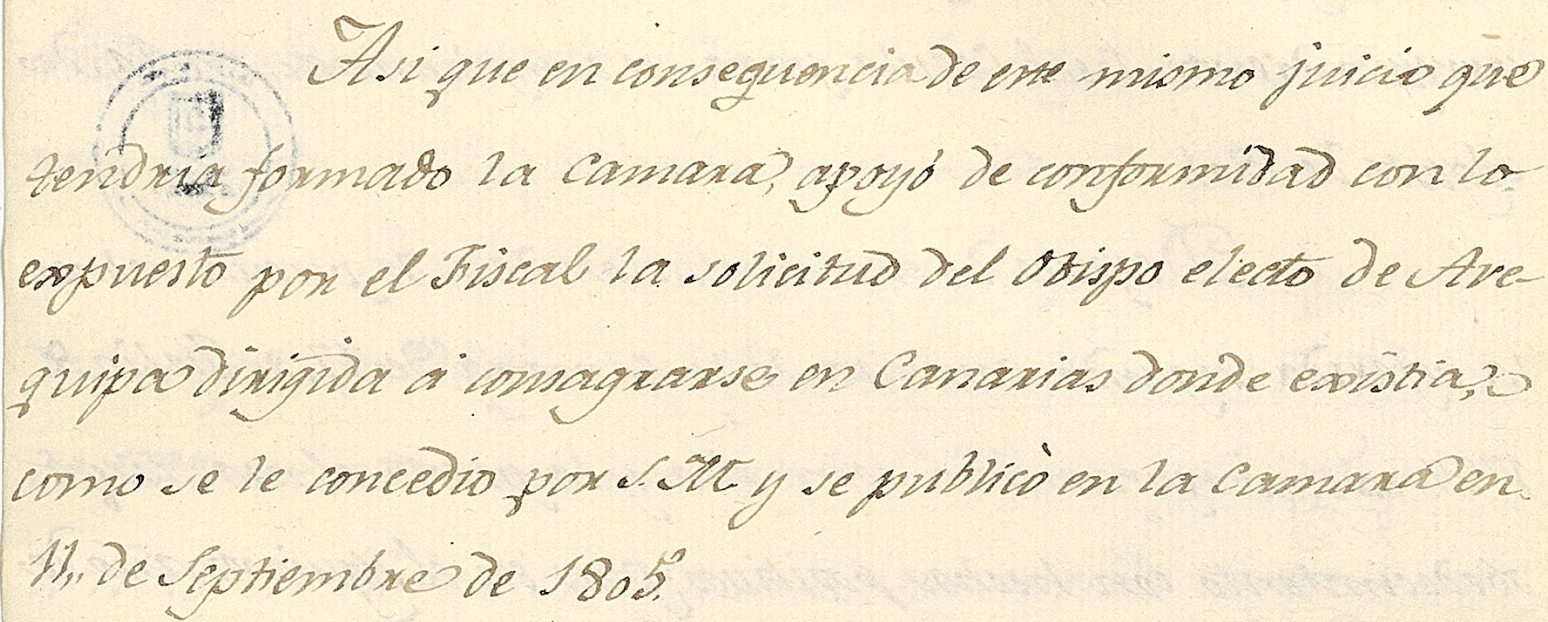 Asi que en consequencia de este mismo juicio que
tendria formado la Camara, apoyó de conformidad con lo
expuesto por el Fiscal la solicitud del Obispo electo de Are-
quipa dirigida á consagrarse en Canarias donde existia,
como se le concedio por S. M. y se publicò en la Camara en
11,, de Septiembre de 1805.